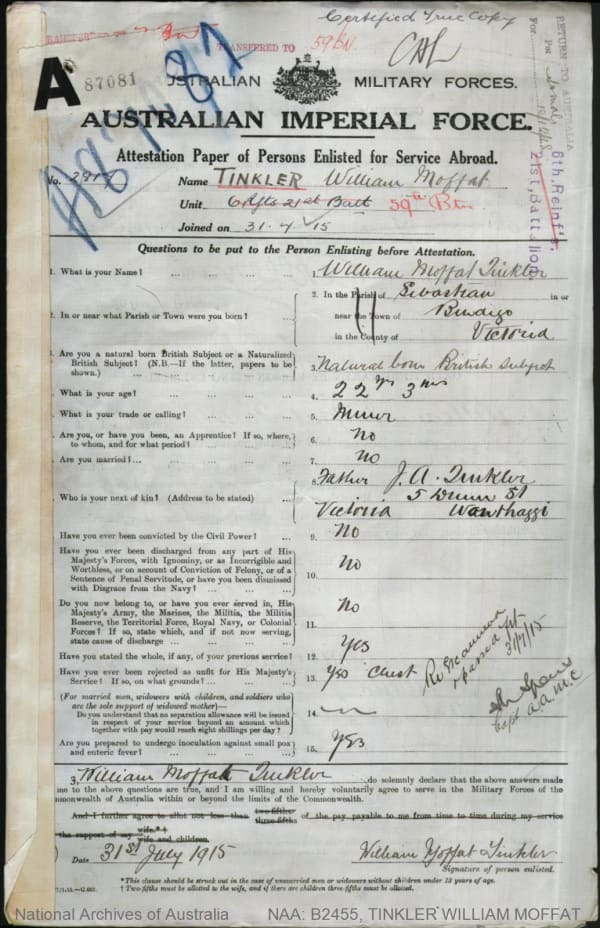 Certified True Copy
TRANSFERRED TO 59 BN.
A
87081
AUSTRALIAN MILITARY FORCES.
AUSTRALIAN IMPERIAL FORCE.
RETURN TO AUSTRALIA
Per
For
6th. Reinfts.
21st. Battalion
Attestation Paper of Persons Enlisted for Service Abroad.
No. Name TINKLER William Moffat
Unit 6 Rfts 21st Batt 59th Btn
Joined on 31.7.15
Questions to be put to the Person Enlisting before Attestation.
1. What is your Name? ... ... ... 1. William Moffat Tinkler
2. In or near what Parish or Town were you born? ... 2. In the Parish of Sebastian in or
near the Town of Bendigo
in the County of Victoria
3. Are you a natural born British Subject or a Naturalized British Subject? (N.B.—If the latter, papers to be shown.) 3. Natural born British Subject
4. What is your age? ... 4. 22 yrs 3 mos
5. What is your trade or calling? ... 5. Miner
6. Are you, or have you been, an Apprentice? If so, where, to whom, and for what period? ... 6. No
7. Are you married? ... 7. No
8. Who is your next of kin? (Address to be stated) ... 8. Father J. A. Tinkler
5 St
Victoria Wonthaggi
Have you ever been convicted by the Civil Power? ... 9. No
Have you ever been discharged from any part of His Majesty's Forces, with Ignominy, or as Incorrigible and Worthless, or on account of Conviction of Felony, or of a Sentence of Penal Servitude, or have you been dismissed with Disgrace from the Navy? ... 10. No
Do you now belong to, or have you ever served in, His Majesty's Army, the Marines, the Militia, the Militia Reserve, the Territorial Force, Royal Navy, or Colonial Forces? If so, state which, and if not now serving, state cause of discharge ... 11. No
Have you stated the whole, if any, of your previous service? 12. Yes
Have you ever been rejected as unfit for His Majesty's Service? If so, on what grounds? ... 13. Yes Chest
Re Examined
& passed fit
31/7/15
Capt A.A.M.C
(For married men, widowers with children, and soldiers who are the sole support of widowed mother)—
Do you understand that no separation allowance will be issued in respect of your service beyond an amount which together with pay would reach eight shillings per day? 14.
Are you prepared to undergo inoculation against small pox and enteric fever? 15. Yes
I, William Moffat Tinkler do solemnly declare that the above answers made
me to the above questions are true, and I am willing and hereby voluntarily agree to serve in the Military Forces of the
Commonwealth of Australia within or beyond the limits of the Commonwealth.
And I further agree to allot not less than two-fifths three-fifths of the pay payable to me from time to time during my service
the support of my wife.*† wife and children.
Date 31st July 1915 William Moffat Tinkler
Signature of person enlisted.
*This clause should be struck out in the case of unmarried men or widowers without children under 18 years of age.
† Two-fifths must be allotted to the wife, and if there are children three-fifths must be allotted.
National Archives of Australia NAA: B2455, TINKLER WILLIAM MOFFAT